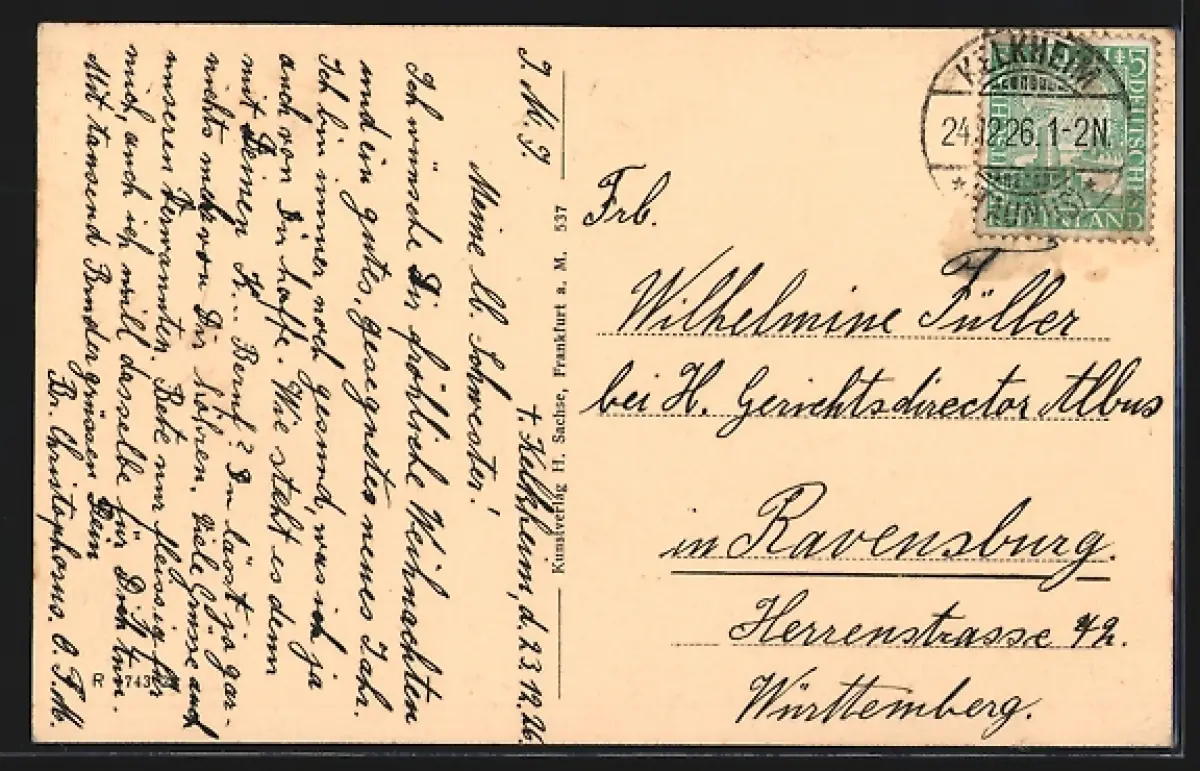 J. M. J.
† Kelkheim, d. 23.12.26.
Meine lb. Schwester!
Ich wünsche Dir fröhliche Weihnachten
und ein gutes, gesegnetes neues Jahr.
Ich bin immer noch gesund, was ich ja
auch von Dir hoffe. Wie steht es denn
mit Deinen K... Beruf? Du lässt ja gar-
nichts mehr von Dir hören. Viele Grüsse auch
unseren Verwannten. Bete nur fleissig für
mich, auch ich will dasselbe für Dich tun.
Mit tausend Brudergrüssen Dein
Br. Christophorus. O. F. M.
R 743
Kunstverlag H. Sachse, Frankfurt a. M. 537
KELKHEIM
24.12.26. 1-2N.
(TAUNUS)
5 DEUTSCHES
Frl.
Wilhelmine Füller
bei H. Gerichtsdirector Albus
in Ravensburg.
Herrenstrasse 42.
Württemberg.